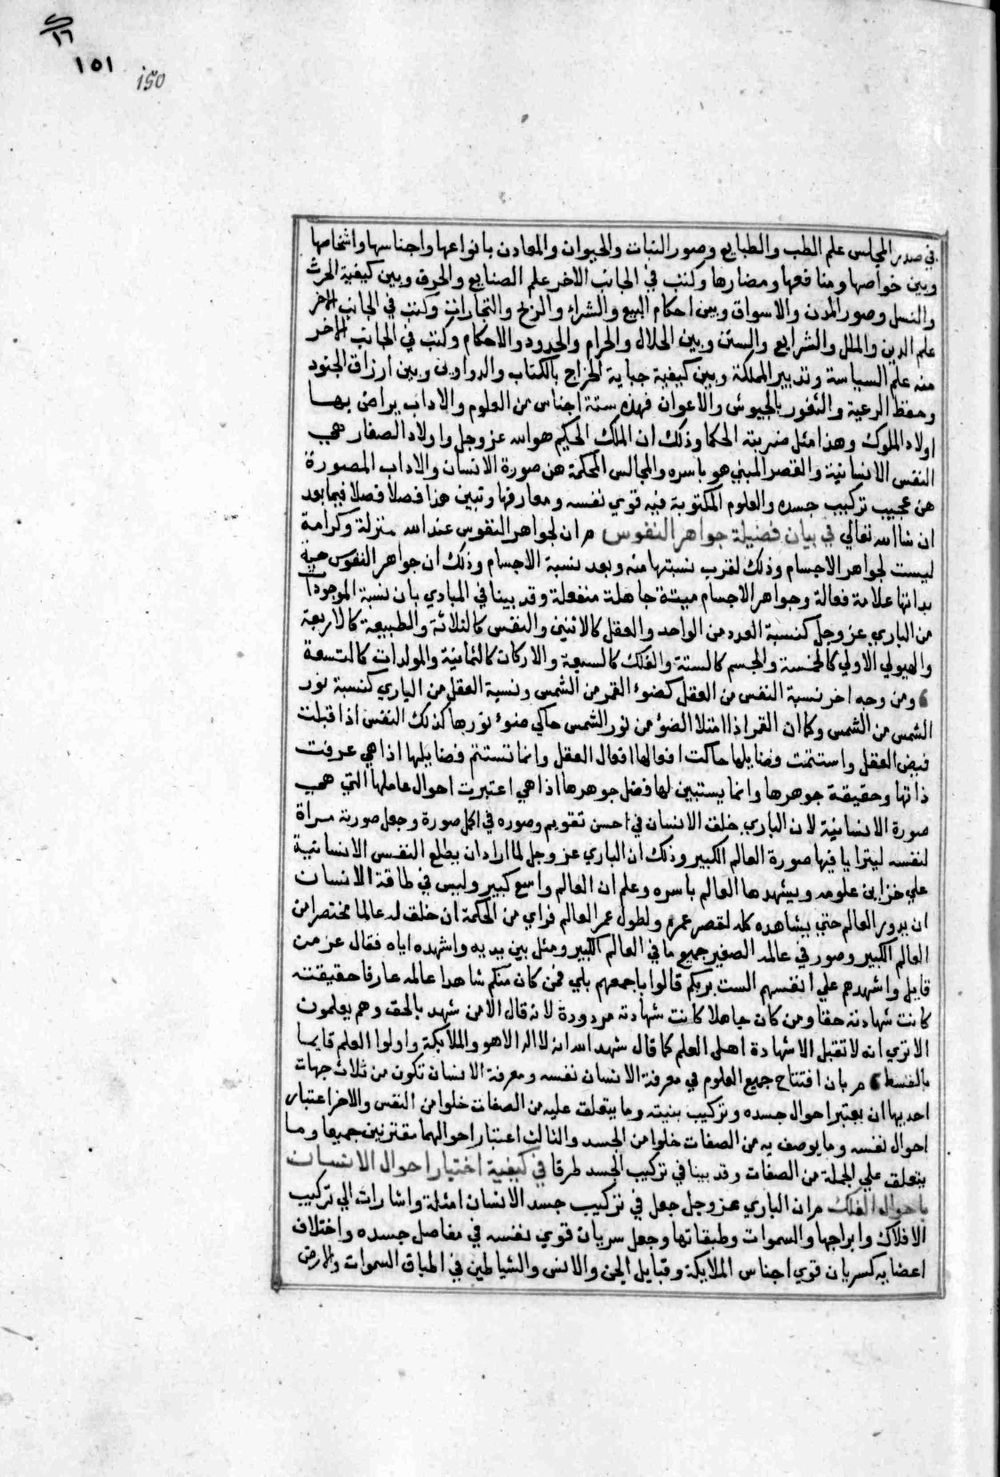 ١٦
١٥١
150
في صدر المجالس علم الطب والطبايع وصور النبات والحيوان والمعادن بانواعها واجناسها واشخاصها
وبين خواصها ومنافعها ومضارها وكتب في الجانب الاخر علم الصنايع والحرف وبين كيفية الحرث
والنسل وصور المدن والاسواق وبين احكام البيع والشراء والربح والتجارات وكتب في الجانب الاخر
علم الدين والملل والشرايع والسنن وبين الحلال والحرام والحدود والاحكام وكتب في الجانب الاخر
منه علم السياسة وتدبير المملكة وبين كيفية جباية الخراج بالكتاب والدواوين وبين ارزاق الجنود
وحفظ الرعية والثغور بالجيوش والاعوان فهذه ستة اجناس من العلوم والاداب يراض بها
اولاد الملوك وهذا مثل ضربته الحكما وذلك ان الملك الحكيم هو الله عز وجل واولاد الصغار هي
النفس الانسانية والقصر المبني هو باسره والمجالس المحكمة هن صورة الانسان والاداب المصورة
هن عجيب تركيب جسده والعلوم المكتوبة فيه قوي نفسه ومعارفها وتبين هذا فصلا فصلا فيما بعد
ان شا الله تعالي في بيان فضيلة جواهر النفوس م ان لجواهر النفوس عند الله منزلة وكرامة
ليست لجواهر الاجسام وذلك لقرب نسبتها منه وبعد نسبة الاجسام وذلك ان جواهر النفوس حية
بذاتها علامة فعالة وجواهر الاجسام ميتة جاهلة منفعلة وقد بينا في المبادي بان نسبة الموجودات
من الباري عز وجل كنسبة العدد من الواحد والعقل كالاثنين والنفس كالثلاثة والطبيعة كالاربعة
والهيولي الاولي كالخمسة والجسم كالستة والفلك كالسبعة والاركان كالثمانية والمولدات كالتسعة
ومن وجه اخر نسبة النفس من العقل كضوء القمر من الشمس ونسبة العقل من الباري كنسبة نور
الشمس من الشمس وكما ان القمر اذا امتلا الضوء من نور الشمس حاكي ضوء نورها كذلك النفس اذا قبلت
فيض العقل واستتمت فضايلها حاكت افعالها افعال العقل وانما تستتم فضايلها اذا هي عرفت
ذاتها وحقيقة جوهرها وانما يستبين لها فضل جوهرها اذا هي اعتبرت احوال عاملها التي هي
صورة الانسانية لان الباري خلق الانسان في احسن تقويم وصوره في اكمل صورة وجعل صورته مراة
لنفسه ليترايا فيها صورة العالم الكبير وذلك ان الباري عز وجل لما اراد ان يطلع النفس الانسانية
علي خزاين علومه ويشهدها العالم باسره وعلم ان العالم واسع كبير وليس في طاقة الانسان
ان يدور العالم حتي يشاهده كله لقصر عمره ولطول عمر العالم فراي من الحكمة ان خلق له عالما مختصرا من
العالم الكبير وصور في عالمه الصغير جميع ما في العالم الكبير ومثل بين يديه واشهده اياه فقال عز من
قايل واشهدهم علي انفسهم الست بربكم قالوا باجمعهم بلي فمن كان منكم شاهدا عالمه عارفا حقيقته
كانت شهادته حقا ومن كان جاهلا كانت شهادته مردودة لانه قال الا من شهد بالحق وهم يعلمون
الا تري انه لا تقبل الا شهادة اهل العلم كما قال شهد الله انه لا اله الا هو والملايكة واولوا العلم قايما
بالقسط م بان افتتاح جميع العلوم في معرفة الانسان نفسه ومعرفة الانسان تكون من ثلاث جهات
احديها ان يعتبر احوال جسده وتركيب بنيته وما يتعلق عليه من الصفات خلوا من النفس والاخر اعتبار
احوال نفسه وما يوصف به من الصفات خلوا من الجسد والثالث اعتبار احوالهما مقترنين جميعا وما
يتعلق علي الجملة من الصفات وقد بينا في تركيب الجسد طرفا في كيفية اختيار احوال الانسان
باحوال الفلك م ان الباري عز وجل جعل في تركيب جسد الانسان امثلة واشارات الي تركيب
الافلاك وابراجها والسموات وطبقاتها وجعل سريان قوي نفسه في مفاصل جسده واختلاف
اعضايه كسريان قوي اجناس الملايكة وقبايل الجن والانس والشياطين في اطباق السموات والارض